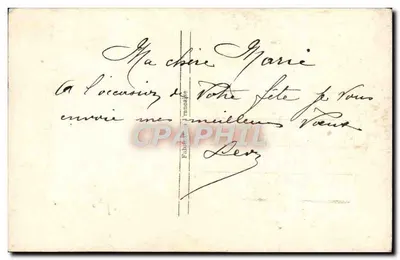 Ma chère Marie
A l'occasion de votre fête je vous
envoie mes meilleurs Vœux
CPAPHIL